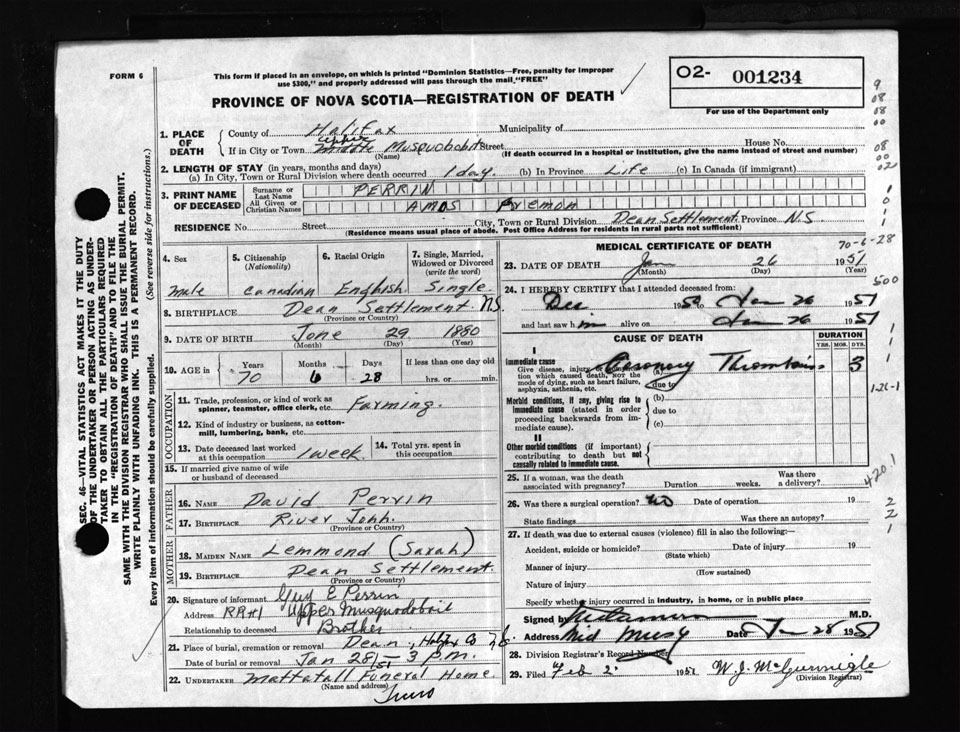 FORM 6
This form if placed in an envelope, on which is printed "Dominion Statistics—Free, penalty for improper
use $300," and properly addressed will pass through the mail "FREE"
O2- 001234
For use of the Department only
PROVINCE OF NOVA SCOTIA—REGISTRATION OF DEATH
1. PLACE OF DEATH
County of Halifax Municipality of
If in City or Town Upper Middle Musquodoboit Street House No.
(Name) (If death occurred in a hospital or institution, give the name instead of street and number)
2. LENGTH OF STAY (in years, months and days)
(a) In City, Town or Rural Division where death occurred 1 day. (b) In Province Life (c) In Canada (if immigrant)
3. PRINT NAME OF DECEASED
Surname or Last Name PERRIN
All Given or Christian Names AMOS
RESIDENCE No. Street City, Town or Rural Division Dean Settlement Province N.S.
(Residence means usual place of abode. Post Office Address for residents in rural parts not sufficient)
4. Sex
male
5. Citizenship (Nationality)
Canadian
6. Racial Origin
English
7. Single, Married, Widowed or Divorced (write the word)
Single.
8. BIRTHPLACE Dean Settlement N.S.
(Province or Country)
9. DATE OF BIRTH June 29 1880
(Month) (Day) (Year)
10. AGE in Years Months Days If less than one day old
70 6 28 hrs. or min.
OCCUPATION
11. Trade, profession or kind of work as spinner, teamster, office clerk, etc. Farming.
12. Kind of industry or business, as cotton-mill, lumbering, bank, etc.
13. Date deceased last worked at this occupation 1 week
14. Total yrs. spent in this occupation
15. If married give name of wife or husband of deceased
FATHER
16. NAME David Perrin
17. BIRTHPLACE River John.
(Province or Country)
MOTHER
18. MAIDEN NAME Lemmond (Sarah)
19. BIRTHPLACE Dean Settlement.
(Province or Country)
20. Signature of informant Guy E Perrin
Address RR#1 Upper Musquodoboit
Relationship to deceased Brother
21. Place of burial, cremation or removal Dean, Halifax Co
Date of burial or removal Jan 28/51 – 3 P.M.
22. UNDERTAKER Mattatall Funeral Home.
(Name and address) Truro
MEDICAL CERTIFICATE OF DEATH
70-6-28
23. DATE OF DEATH Jan 26 1951
(Month) (Day) (Year)
24. I HEREBY CERTIFY that I attended deceased from:
Dec 1950 to Jan 26 1951
and last saw him alive on Jan 26 1951
CAUSE OF DEATH
DURATION
YRS. MOS. DYS.
I
Immediate cause (a) Coronary Thrombosis. 3
Give disease, injury or complication which caused death, not the mode of dying, such as heart failure, asphyxia, asthenia, etc.
due to
Morbid conditions, if any, giving rise to immediate cause (stated in order proceeding backwards from immediate cause).
(b)
due to
(c)
II
Other morbid conditions (if important) contributing to death but not causally related to immediate cause.
25. If a woman, was the death associated with pregnancy? Duration weeks. Was there a delivery?
26. Was there a surgical operation? no Date of operation 19
State findings Was there an autopsy?
27. If death was due to external causes (violence) fill in also the following:—
Accident, suicide or homicide? Date of injury 19
(State which)
Manner of injury
(How sustained)
Nature of injury
Specify whether injury occurred in industry, in home, or in public place
Signed by M.D.
Address Mid Musq Date Jan 28 1951
28. Division Registrar's Record Number
29. Filed Feb 2 1951 W. J. McGunnigle
(Division Registrar)
SEC. 46—VITAL STATISTICS ACT MAKES IT THE DUTY
OF THE UNDERTAKER OR PERSON ACTING AS UNDER-
TAKER TO OBTAIN ALL THE PARTICULARS REQUIRED
IN THE "REGISTRATION OF DEATH" AND TO FILE THE
SAME WITH THE DIVISION REGISTRAR WHO SHALL ISSUE THE BURIAL PERMIT.
WRITE PLAINLY WITH UNFADING INK. THIS IS A PERMANENT RECORD.
Every item of information should be carefully supplied. (See reverse side for instructions.)
9
08
08
00
08
00
02
1
0
1
1
500
1
1
1
1-26-1
4201
2
2
1